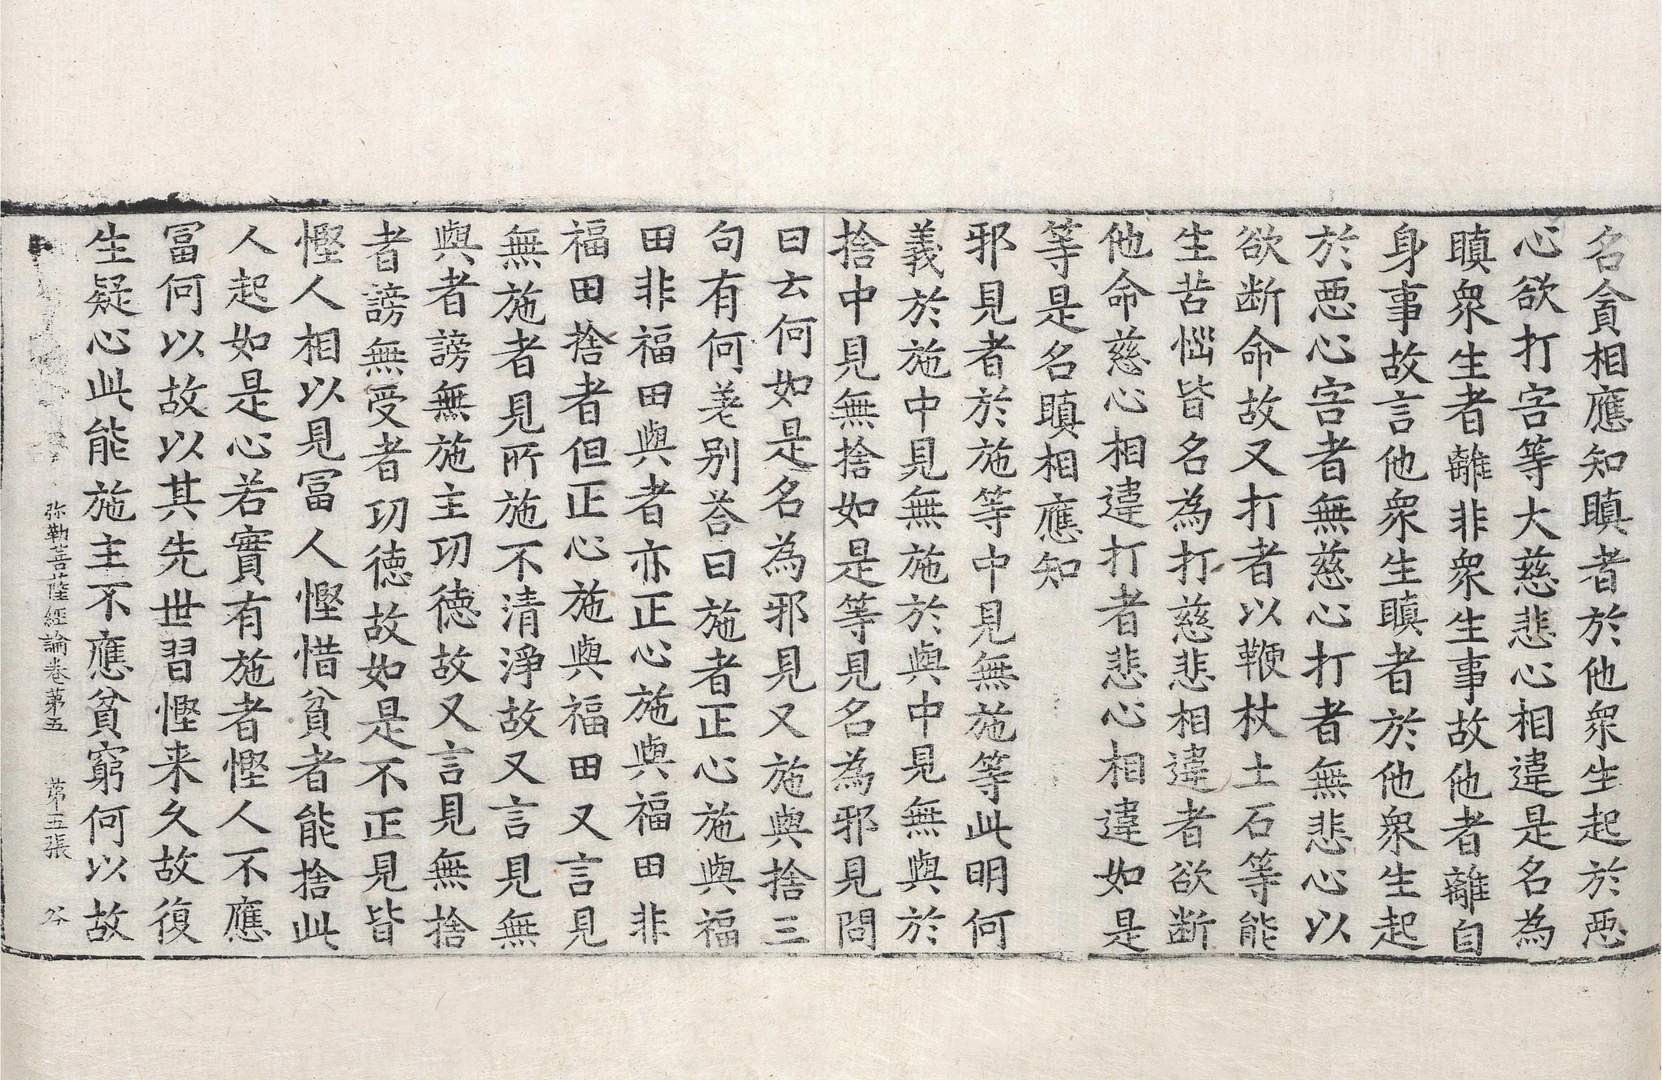 名貪相應知瞋者於他衆生起於惡
心欲打害等大慈悲心相違是名為
瞋衆生者離非衆生事故他者離自
身事故言他衆生瞋者於他衆生起
於惡心害者無慈心打者無悲心以
欲斷命故又打者以鞭杖土石等能
生苦惱皆名為打慈悲相違者欲斷
他命慈心相違打者悲心相違如是
等是名瞋相應知
邪見者於施等中見無施等此明何
義於施中見無施於與中見無與於
捨中見無捨如是等見名為邪見問
曰云何如是名為邪見又施與捨三
句有何差別荅曰施者正心施與福
田非福田與者亦正心施與福田非
福田捨者但正心施與福田又言見
無施者見所施不清淨故又言見無
與者謗無施主功德故又言見無捨
者謗無受者功德故如是不正見皆
慳人相以見冨人慳惜貧者能捨此
人起如是心若實有施者慳人不應
冨何以故以其先世習慳来久故復
生疑心此能施主不應貧窮何以故
弥勒菩薩經論卷第五 第五張 谷